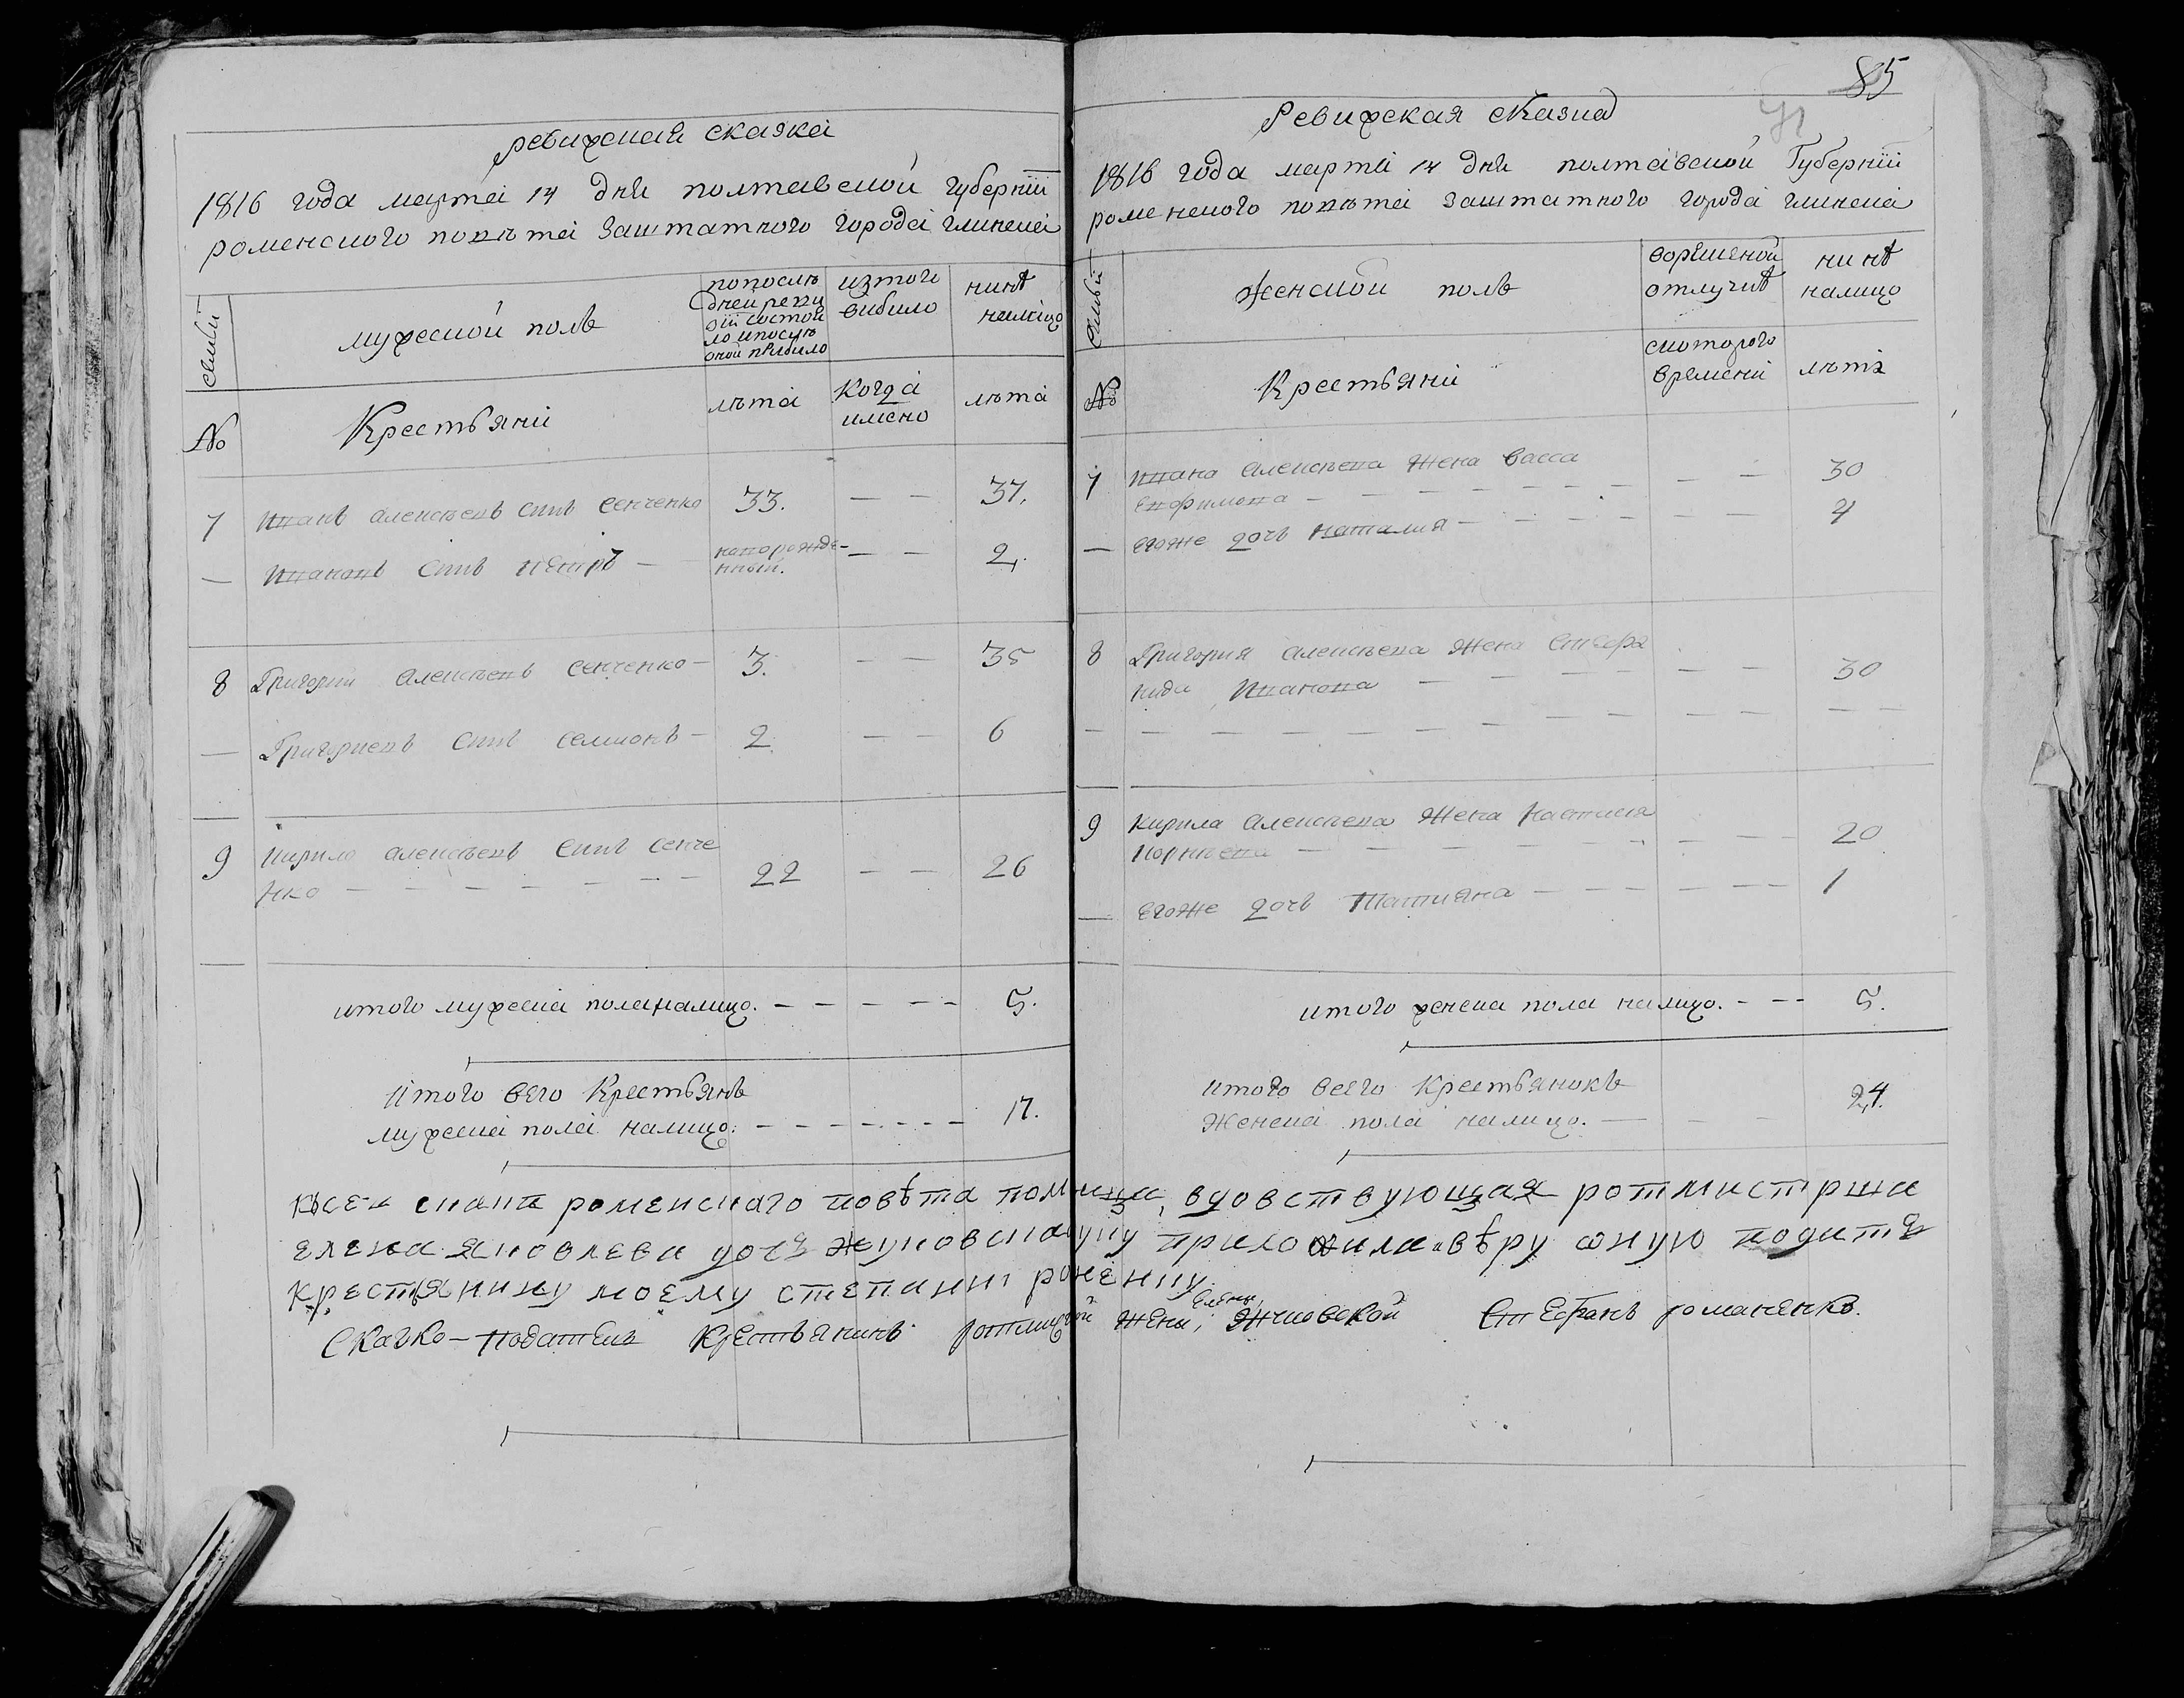 85
71
Ревижская сказка
1816 года марта 14 дня полтавской губернїи
роменского повѣта заштатного города глинска
семьи
мужеской полъ
попослѣ
дней реви
зїи состоя
ло ипослѣ
оной прибыло
изтого
вибило
нинѣ
налицо
№
Крестьяни
лѣта
когда
имено
лѣта
7 Иванъ алексѣевъ синъ сенченко 33. — — 37.
— Ивановъ синъ петръ — новорожде-
нный. — — 2.
8 Григорий алексѣевъ сенченко — 3. — — 35
— Григориевъ синъ семионъ — 2 — — 6
9 кирило алексѣевъ синъ сенче
нко — — — — — — — 22 — — 26
итого мужеска пола налицо. — — — — — 5.
итого всего крестьянъ
мужеска пола налицо. — — — — — — — 17.
Ревижская сказка
1816 года марта 14 дня полтавской губернїи
роменского повѣта заштатного города глинска
семьи
женской полъ
вовременой
отлучкѣ
нинѣ
налицо
№
Крестьяни
скоторого
времени
лѣта
7 Ивана алексѣева жена васса
Евфимова — — — — — — — — — 30
— егоже дочь наталия — — — — — — — 4
8 Григория алексѣева жена стефа
нида Иванова — — — — — — 30
— — — — — — — — — — — —
9 кирила алексѣева жена настасия
корнѣева — — — — — — — — 20
— егоже дочь татияна — — — — — — 1
итого женска пола налицо. — — — 5.
итого всего крестьянокъ
женска пола налицо. — — — 24.
роменскаго повѣта помещица, вдовствующая ротмистрша
елена яковлева дочь жуковска руку приложила вѣру оную подать
крестянину моему степану романенку
Скаско-податель крестьянинъ жени, Елены, Степанъ романенко.